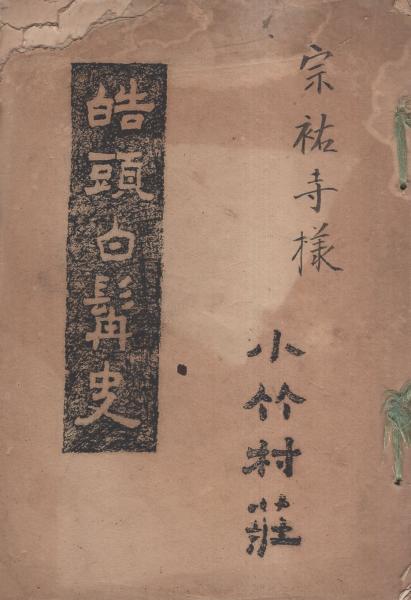 宗祐寺様
小竹村荘
皓頭白髯史